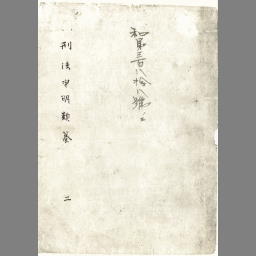 和第三百八拾八號ノ二
刑法申明類纂 二